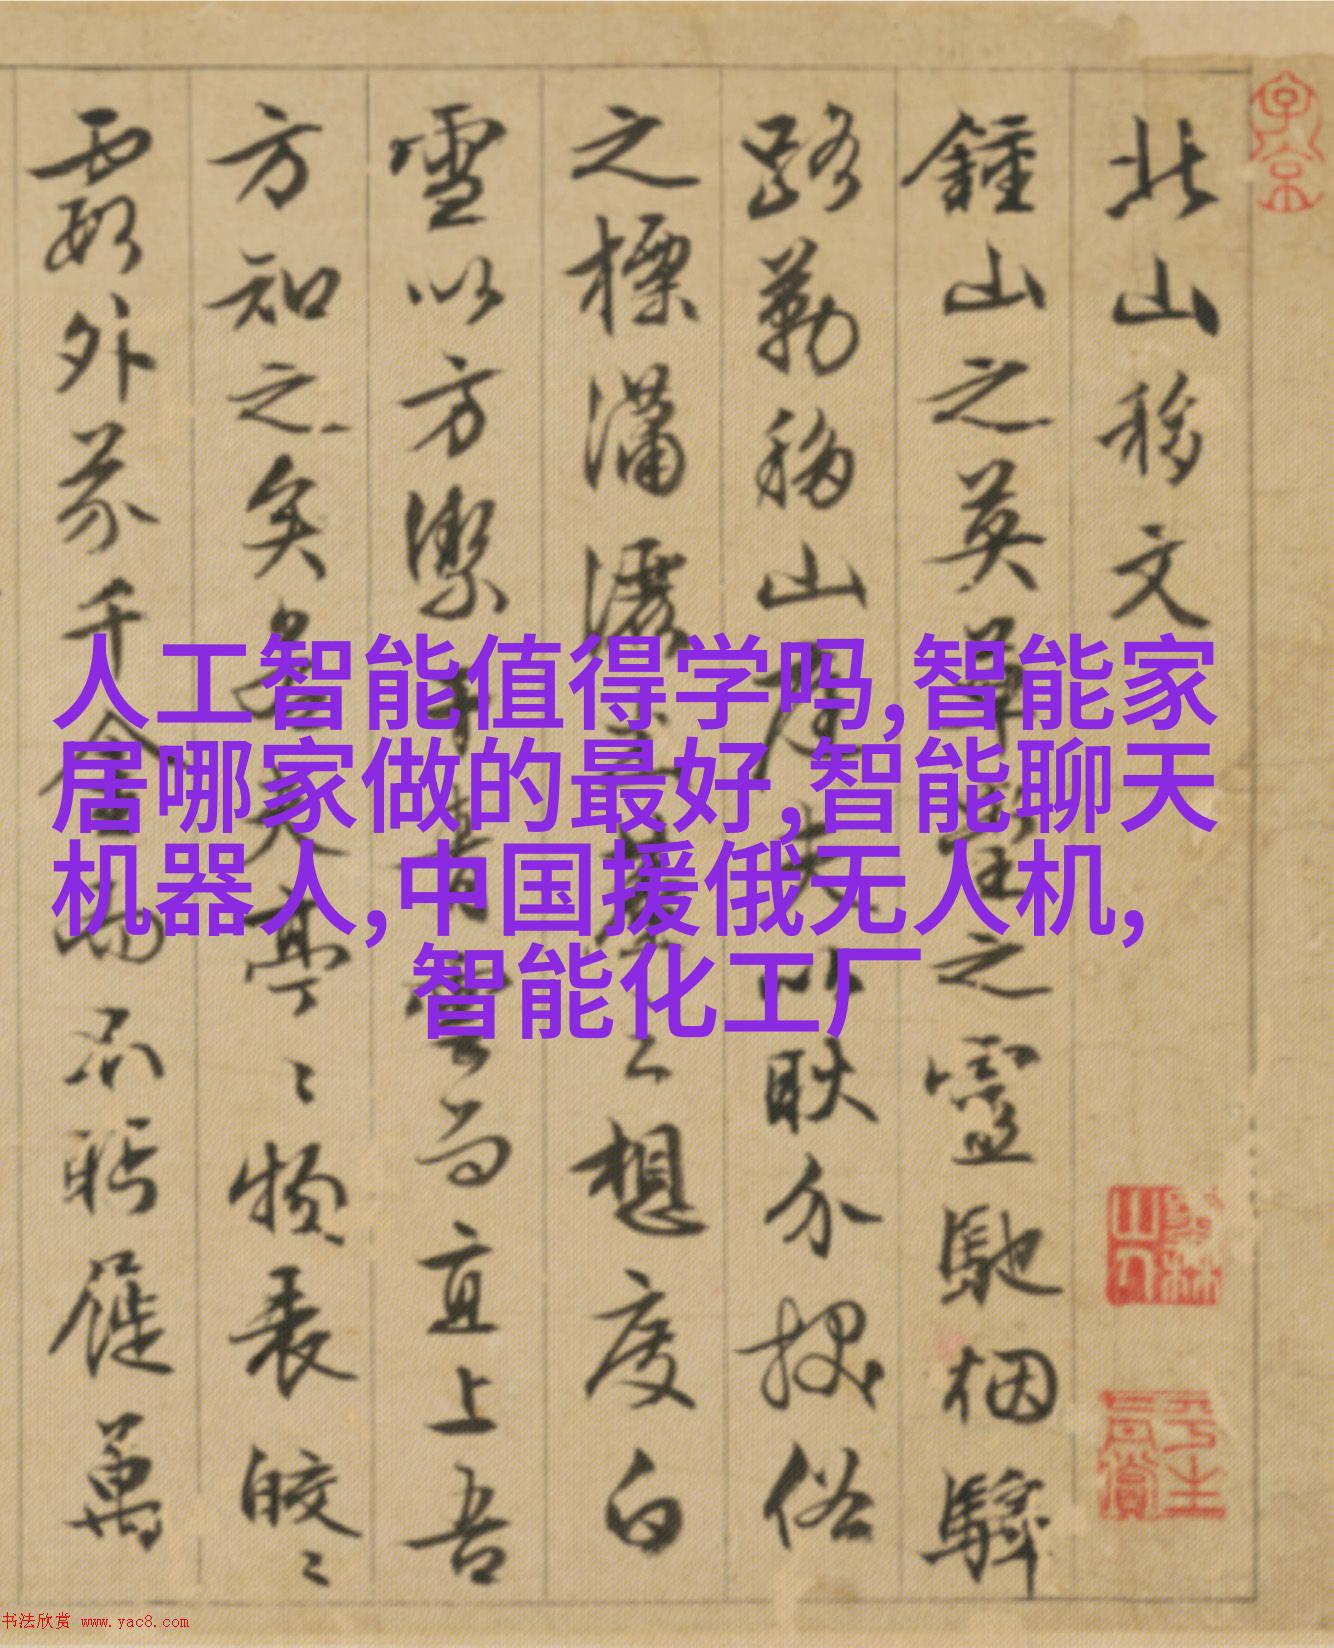 人工智能值得学吗,智能家
居哪家做的最好,智能聊天
机器人,中国援俄无人机,
智能化工厂
北山移文
鍾山之英草堂之靈馳烟驛
路勒移山庭夫以耿介拔俗
之標瀟灑出塵之想度白
雪以方潔干青雲而直上吾
方知之矣若其亭亭物表皎皎
霞外芥千金而不眄屣萬
书法欣赏 www.yac8.com